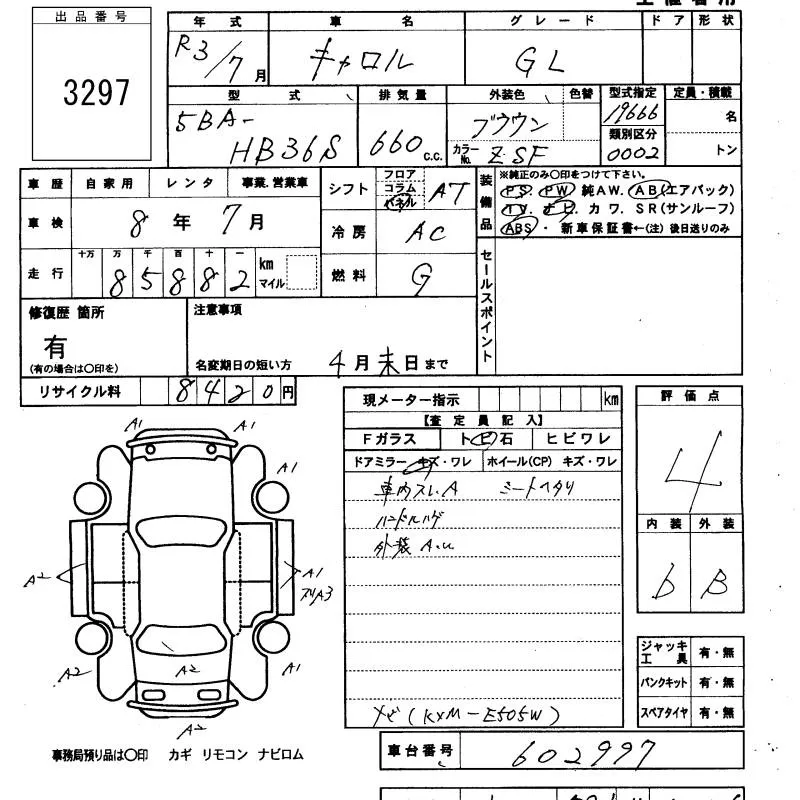 出品番号
3297
年式 車名 グレード ドア 形状
R3/7月 キャロル GL
型式 排気量 外装色 色替 型式指定 定員・積載
5BA-HB36S 660c.c. ブラウン 19666 名
カラーNo. ZSF 類別区分 0002 トン
車歴 自家用 レンタ 事業.営業車
車検 8年7月
走行 十万 万 千 百 十 一
85882 km マイル
シフト フロア コラム パネル AT
冷房 AC
燃料 G
装備品 ※純正のみ〇印をつけて下さい。
PS. PW 純AW. AB(エアバック)
TV. ナビ. カワ. SR(サンルーフ)
ABS ・ 新車保証書←(注) 後日送りのみ
セールスポイント
修復歴 箇所
有
(有の場合は〇印を)
注意事項
名変期日の短い方 4月末日まで
リサイクル料 8420円
現メーター指示 km
【査定員記入】
Fガラス トビ石 ヒビワレ
ドアミラー キズ・ワレ ホイール(CP) キズ・ワレ
車内スレ.A シートヘタリ
ハンドルハゲ
外装 A.U
ナビ(KXM-E505W)
評価点
4
内装 外装
b B
ジャッキ工具 有・無
パンクキット 有・無
スペアタイヤ 有・無
A1 A1
A1
A2 A1
A3
A2 A2 A1
A2
事務局預り品は〇印 カギ リモコン ナビロム
車台番号 602997